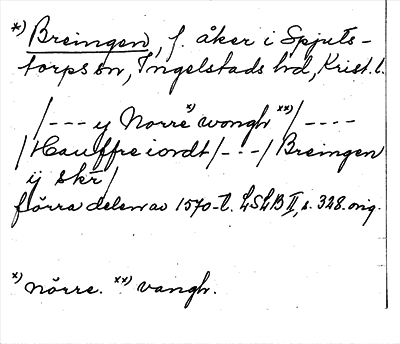 *) Breingen, f. åker i Spjuts-
torps sn, Ingelstads hd, Krist. l.
/--- y Norre *) wongh **) /----
/Hauffre iordt/---/ Breingen
ij skr/
förra delen av 1570-t. LSLB II, s. 328. orig.
*) nörre. **) vangh.